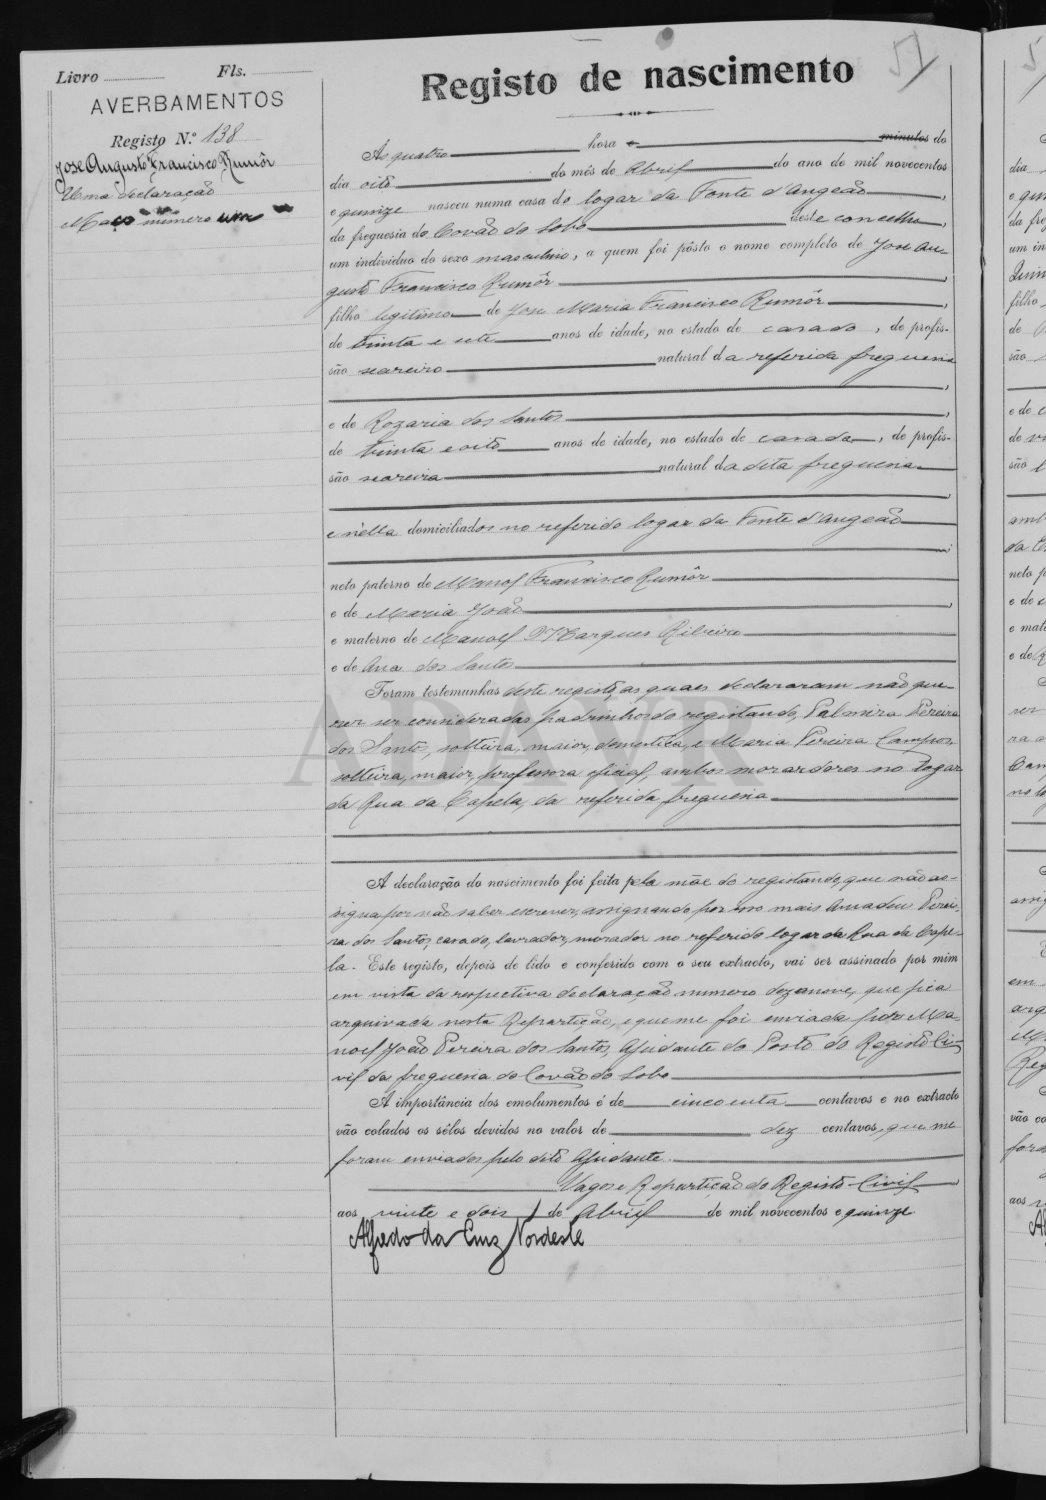 Livro Fls.
AVERBAMENTOS
Registo N.º 138
José Augusto Francisco Rumôr
Uma declaração
Maço número um
51
Registo de nascimento
Ás quatro hora e minutos do
dia oito do mês de Abril do ano de mil novecentos
e quinze nasceu numa casa do logar da Fonte d'Angeão,
da freguesia do Covão do Lobo deste concelho,
um individuo do sexo masculino, a quem foi pôsto o nome completo de José Au-
gusto Francisco Rumôr,
filho legitimo de José Maria Francisco Rumôr,
de trinta e sete anos de idade, no estado de casado, de profis-
são seareiro natural da referida freguesia
,
e de Rozaria dos Santos,
de trinta e oito anos de idade, no estado de casada, de profis-
são seareira natural da dita freguesia
,
e nella domiciliados no referido logar da Fonte d'Angeão
;
neto paterno de Manoel Francisco Rumôr
e de Maria João,
e materno de Manoel Marques Ribeiro
e de Ana dos Santos
Foram testemunhas deste registo, as quaes declararam não que-
rer ser consideradas padrinhos do registando, Palmira Pereira
dos Santos, solteira, maior, domestica, e Maria Pereira Campos,
solteira, maior, professora oficial, ambos moradores no logar
da Rua da Capela, da referida freguesia
A declaração do nascimento foi feita pela mãe do registando, que não as-
signa por não saber escrever, assignando por isso mais Amadeu Perei-
ra dos Santos, casado, lavrador, morador no referido logar da Rua da Cape-
la. Este registo, depois de lido e conferido com o seu extracto, vai ser assinado por mim
em vista da respectiva declaração numero dezanove, que fica
arquivada nesta Repartição, e que me foi enviada pelo Ma-
noel João Pereira dos Santos, Ajudante do Posto do Registo Ci-
vil da freguesia do Covão do Lobo
A importância dos emolumentos é de cincoenta centavos e no extracto
vão colados os sêlos devidos no valor de dez centavos, que me
foram enviados pelo dito Ajudante.
Vagos e Repartição do Registo Civil,
aos vinte e dois de Abril de mil novecentos e quinze
Alfredo da Cruz Nordeste
ADAVR